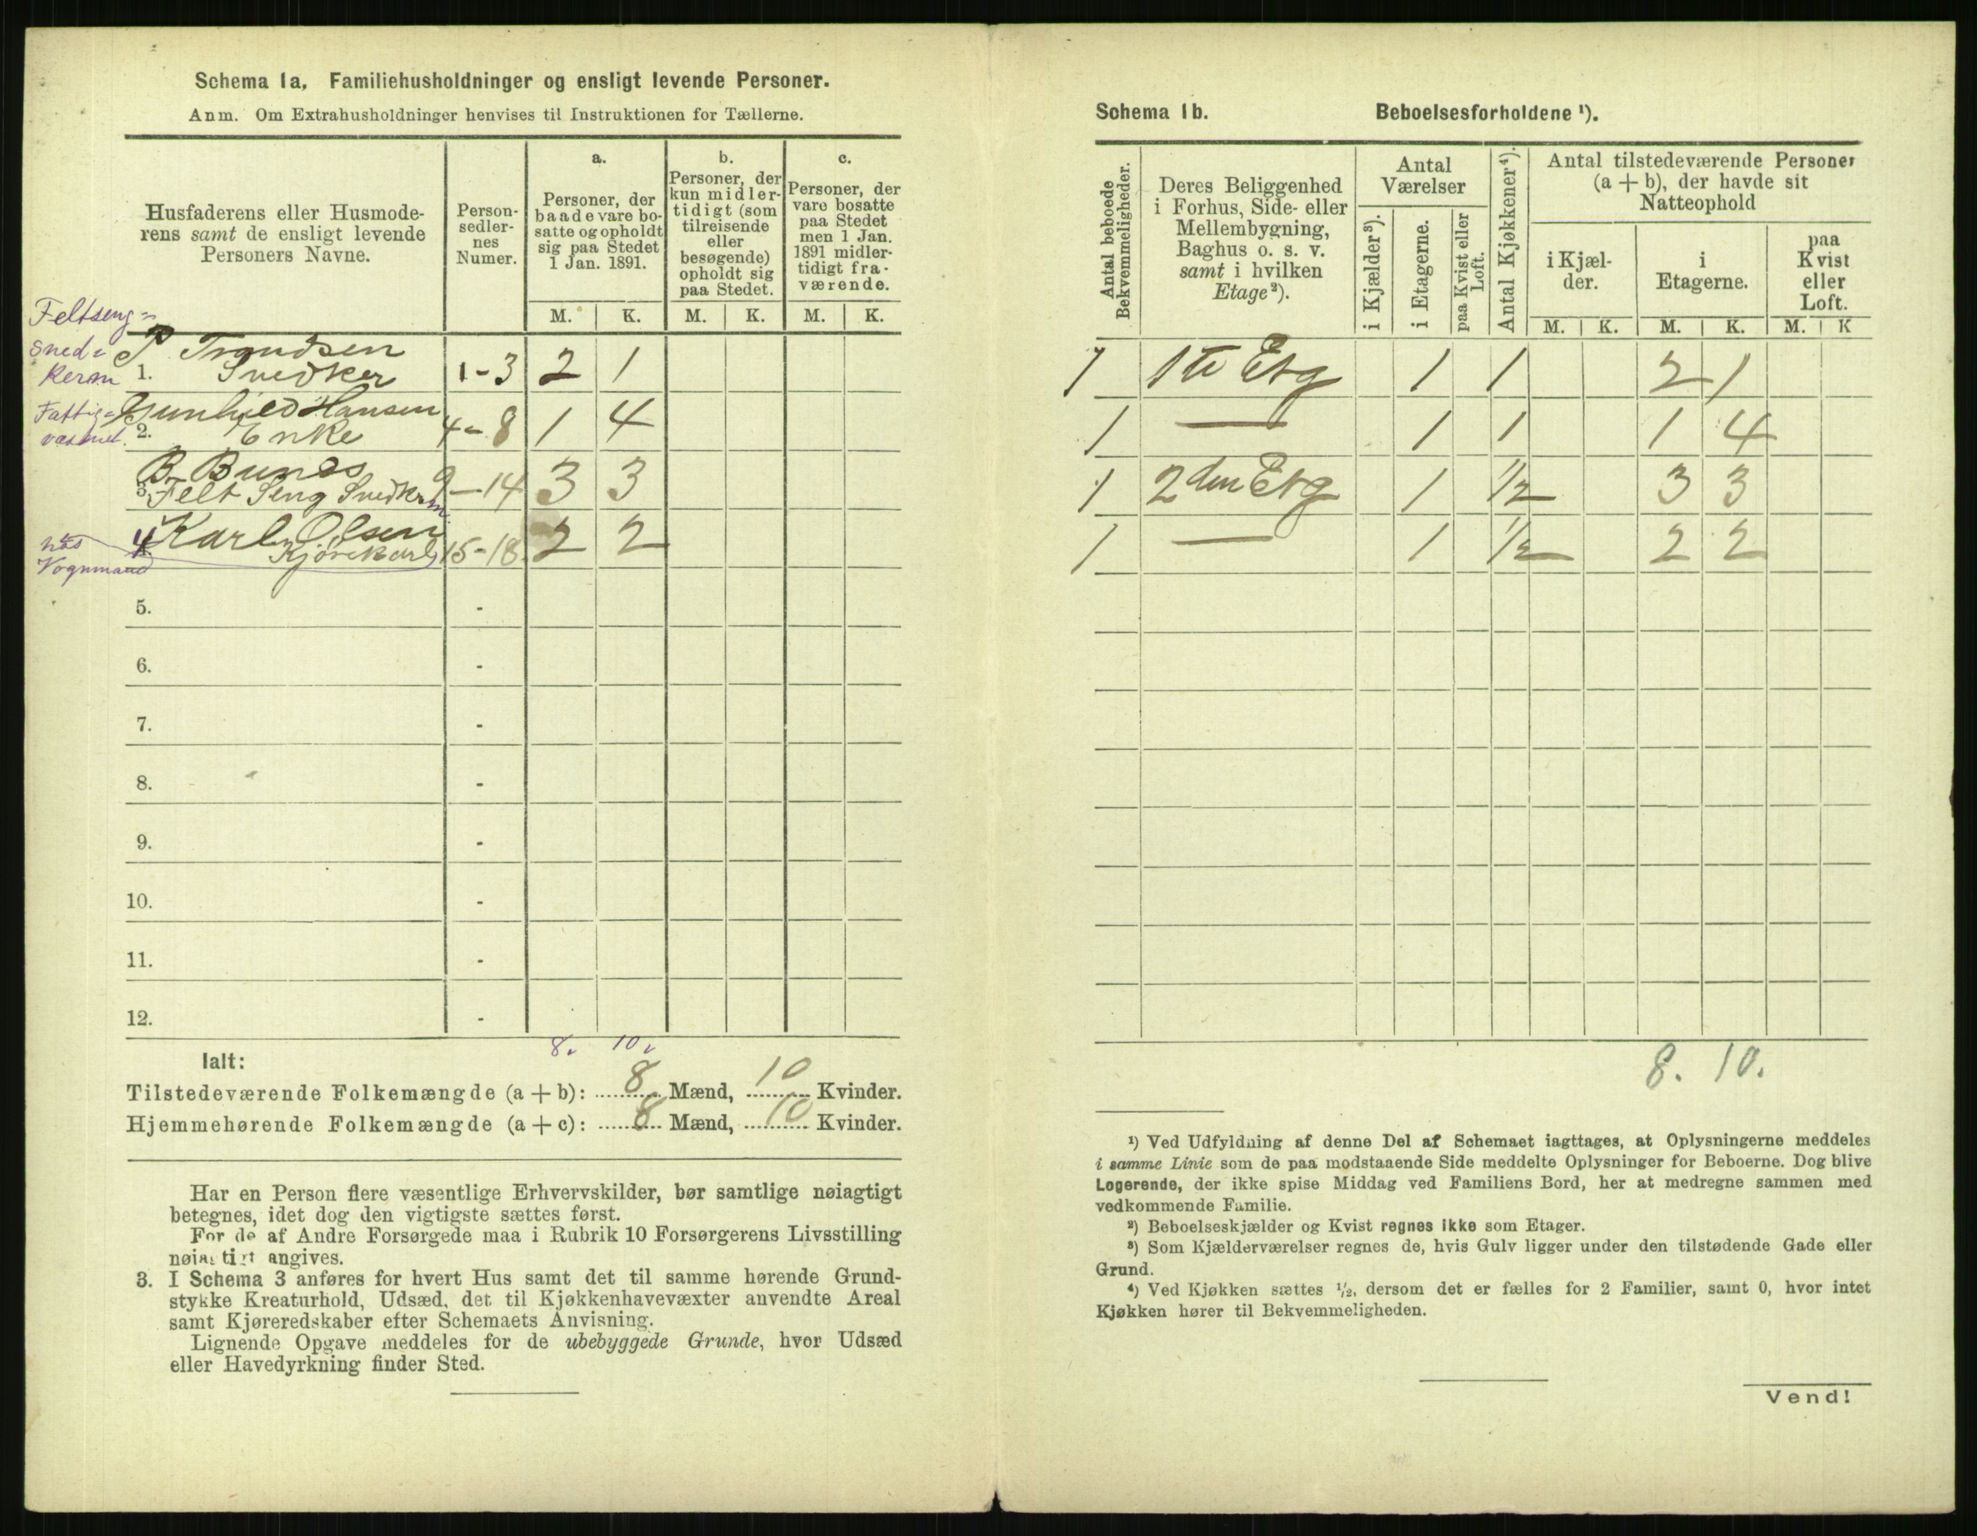 Schema 1a. Familiehusholdninger og ensligt levende Personer.
Anm. Om Extrahusholdninger henvises til Instruktionen for Tællerne.
Husfaderens eller Husmode-
rens samt de ensligt levende
Personers Navne.
Person-
sedler-
nes
Numer.
a.
Personer, der
baade vare bo-
satte og opholdt
sig paa Stedet
1 Jan. 1891.
b.
Personer, der
kun midler-
tidigt (som
tilreisende
eller
besøgende)
opholdt sig
paa Stedet.
c.
Personer, der
vare bosatte
paa Stedet
men 1 Jan.
1891 midler-
tidigt fra-
værende.
M. K. M. K. M. K.
Feltseng=
sned=
kerm
1. P. Trondsen
Snedker 1-3 2 1
Fattig=
væsenet.
2. Gunhild Hansen
Enke 4-8 1 4
3. B. Bunes
Felt Seng Snedker 9-14 3 3
hos
Vognmand
4 Karl Olsen
Kjørekarl 15-18 2 2
5. -
6. -
7. -
8. -
9. -
10. -
11. -
12. -
8. 10.
Ialt:
Tilstedeværende Folkemængde (a + b): 8 Mænd, 10 Kvinder.
Hjemmehørende Folkemængde (a + c): 8 Mænd, 10 Kvinder.
Har en Person flere væsentlige Erhvervskilder, bør samtlige nøiagtigt
betegnes, idet dog den vigtigste sættes først.
For de af Andre Forsørgede maa i Rubrik 10 Forsørgerens Livsstilling
nøiagtigt angives.
3. I Schema 3 anføres for hvert Hus samt det til samme hørende Grund-
stykke Kreaturhold, Udsæd, det til Kjøkkenhavevæxter anvendte Areal
samt Kjøreredskaber efter Schemaets Anvisning.
Lignende Opgave meddeles for de ubebyggede Grunde, hvor Udsæd
eller Havedyrkning finder Sted.
Schema 1b. Beboelsesforholdene ¹).
Antal beboede
Bekvemmeligheder.
Deres Beliggenhed
i Forhus, Side- eller
Mellembygning,
Baghus o. s. v.
samt i hvilken
Etage²).
Antal
Værelser
i Kjælder³).
i Etagerne.
paa Kvist eller
Loft.
Antal Kjøkkener⁴).
Antal tilstedeværende Personer
(a + b), der havde sit
Natteophold
i Kjæl-
der.
i
Etagerne.
paa
Kvist
eller
Loft.
M. K. M. K. M. K
1 1ste Etg 1 1 2 1
1 — 1 1 1 4
1 2den Etg 1 1/2 3 3
1 — 1 1/2 2 2
8. 10.
¹) Ved Udfyldning af denne Del af Schemaet iagttages, at Oplysningerne meddeles
i samme Linie som de paa modstaaende Side meddelte Oplysninger for Beboerne. Dog blive
Logerende, der ikke spise Middag ved Familiens Bord, her at medregne sammen med
vedkommende Familie.
²) Beboelseskjælder og Kvist regnes ikke som Etager.
³) Som Kjælderværelser regnes de, hvis Gulv ligger under den tilstødende Gade eller
Grund.
⁴) Ved Kjøkken sættes ½, dersom det er fælles for 2 Familier, samt 0, hvor intet
Kjøkken hører til Bekvemmeligheden.
Vend!